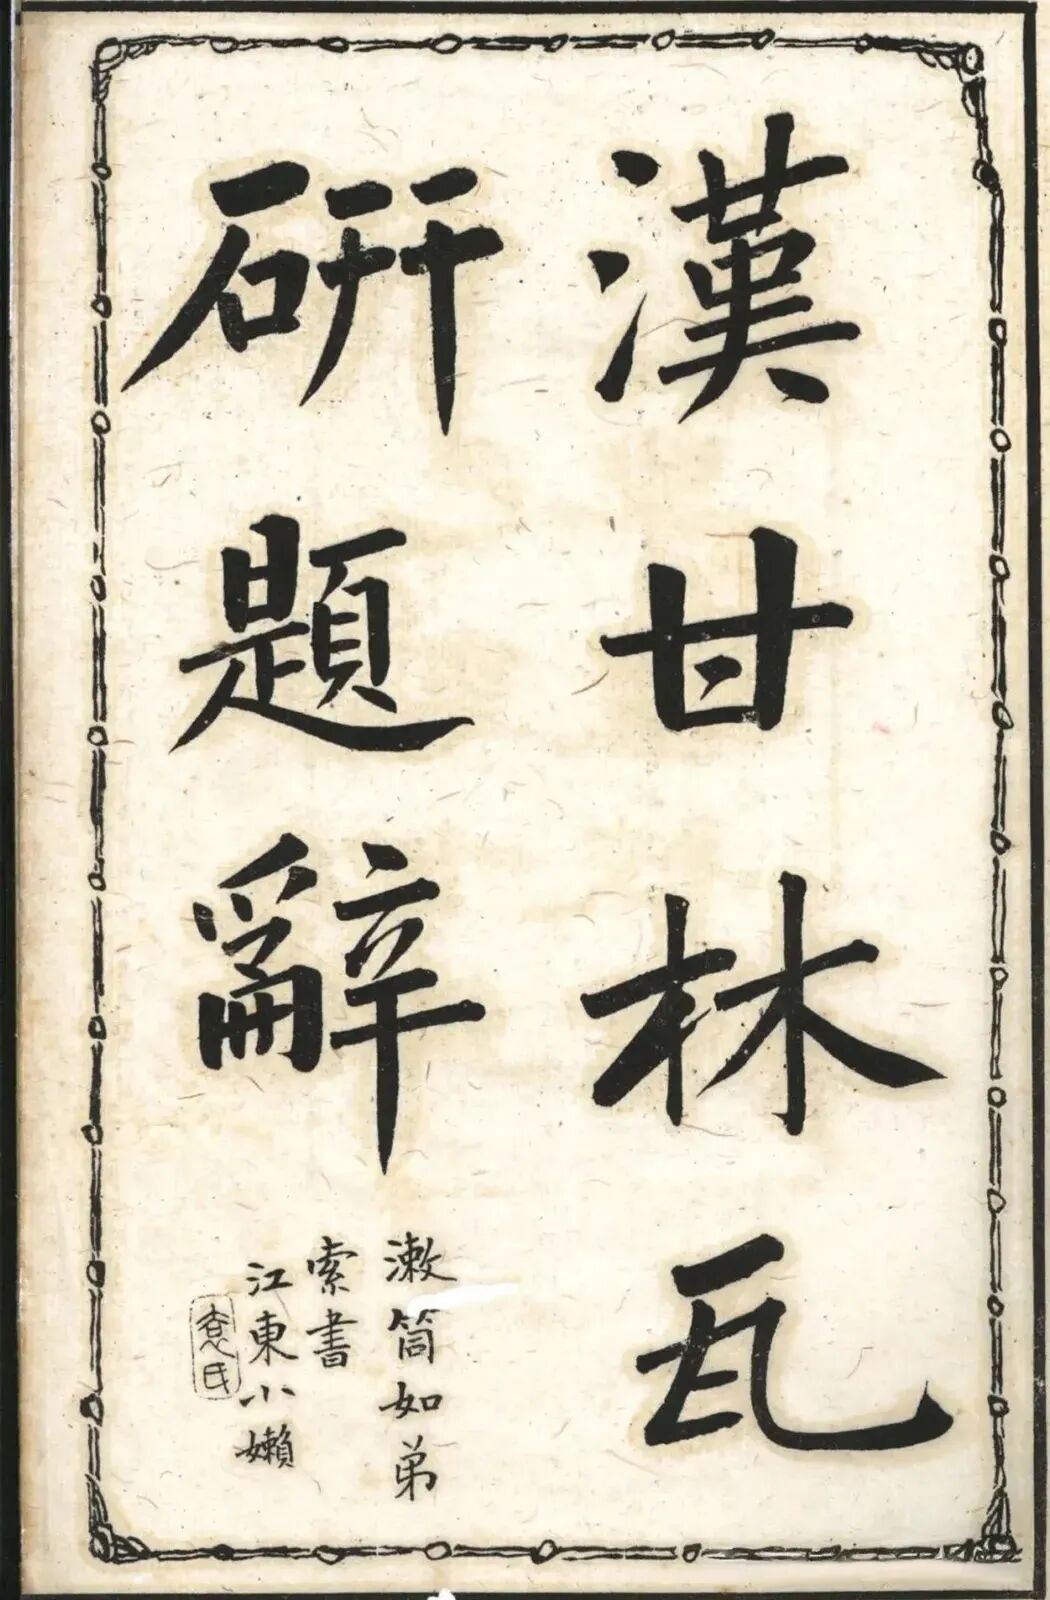 漢甘林瓦
硏題辭
漱筒如弟
索書
江東小嬾
袁氏